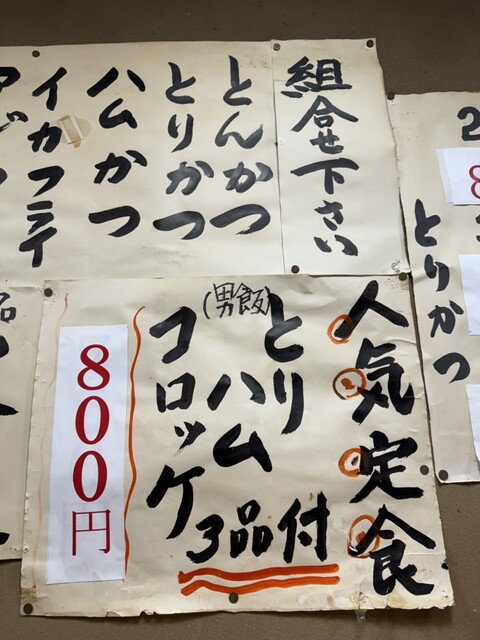 組合せ下さい
とんかつ
とりかつ
ハムかつ
イカフライ
とりかつ
人気定食
(男飯)
とり
ハム
コロッケ
3品付
800円